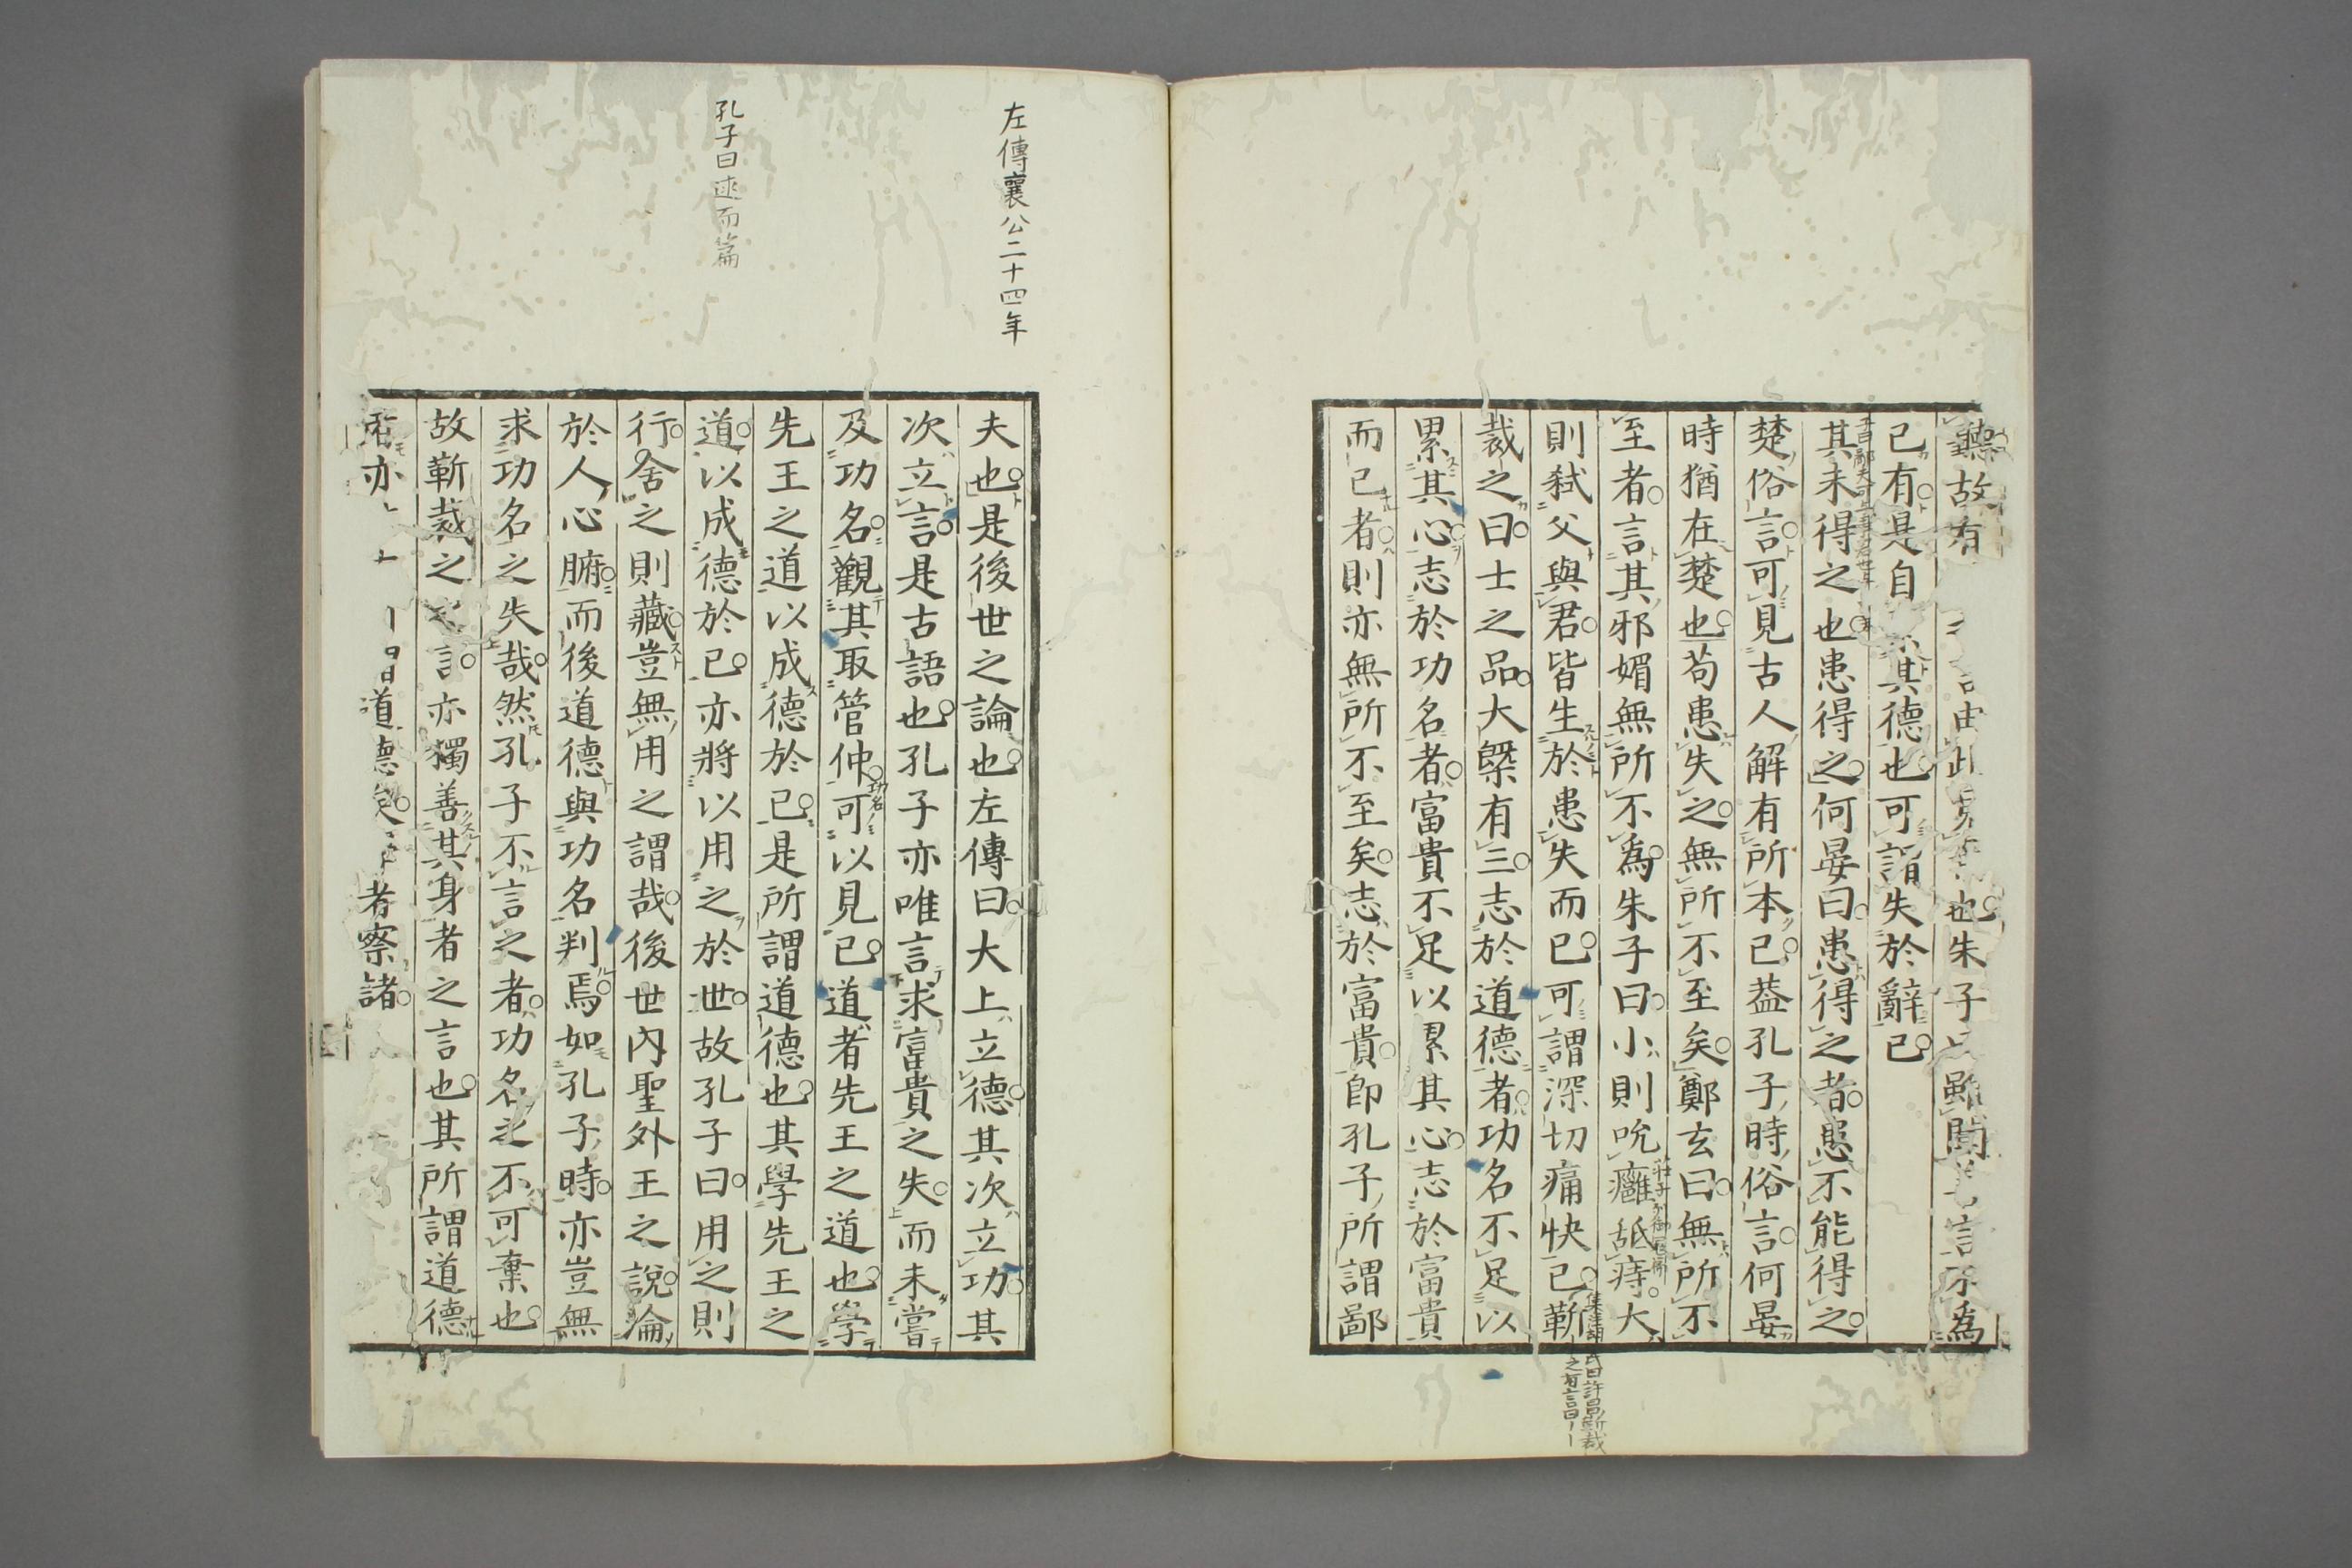 聽故有
言由此
也朱子
雖聞
言不為
已有是自
其德也可謂失於辭已
其未得之也患得之何晏曰患得之者患不能得之
楚俗言可見古人解有所本已蓋孔子時俗言何晏
時猶在楚也苟患失之無所不至矣鄭玄曰無所不
至者言其邪媚無所不為朱子曰小則吮癰舐痔大
則弑父與君皆生於患失而已可謂深切痛快已靳
裁之曰士之品大槩有三志於道德者功名不足以
累其心志於功名者富貴不足以累其心志於富貴
而已者則亦無所不至矣志於富貴卽孔子所謂鄙
左傳襄公二十四年
孔子曰述而篇
夫也是後世之論也左傳曰大上立德其次立功其
次立言是古語也孔子亦唯言求富貴之失而未嘗
及功名觀其取管仲可以見已道者先王之道也學
先王之道以成德於己是所謂道德也其學先王之
道以成德於己亦將以用之於世故孔子曰用之則
行舍之則藏豈無用之謂哉後世內聖外王之說淪
於人心腑而後道德與功名判焉如孔子時亦豈無
求功名之失哉然孔子不言之者功名之不可棄也
故靳裁之
言亦獨善其身者之言也其所謂道德
亦
道德矣
者察諸